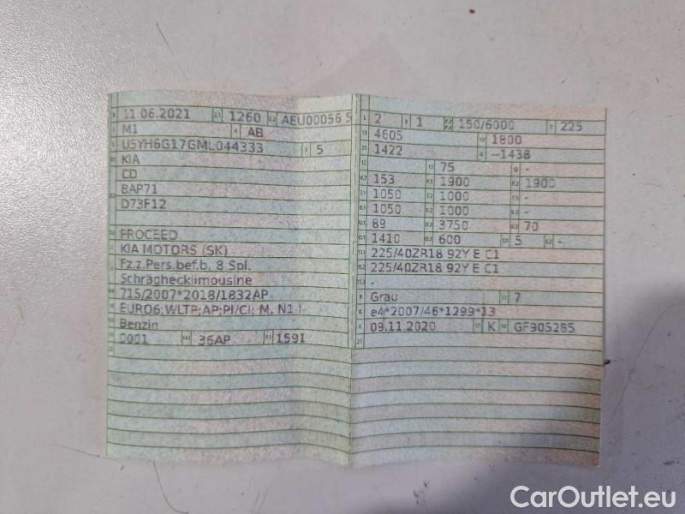 11.06.2021 1260 AEU00056 5
M1 AB
U5YH6G17GML044333 5
KIA
CD
BAP71
D73F12
PROCEED
KIA MOTORS (SK)
Fz.z.Pers.bef.b. 8 Spl.
Schräghecklimousine
715/2007*2018/1832AP
EURO6;WLTP;AP;PI/CI; M, N1 I
Benzin
0001 36AP 1591
2 1 150/6000 225
4605 1800
1422 -1438
75 -
153 1900 1900
1050 1000 -
1050 1000 -
89 3750 70
1410 600 5 -
225/40ZR18 92Y E C1
225/40ZR18 92Y E C1
-
Grau 7
e4*2007/46*1299*13
09.11.2020 K GF905285
CarOutlet.eu